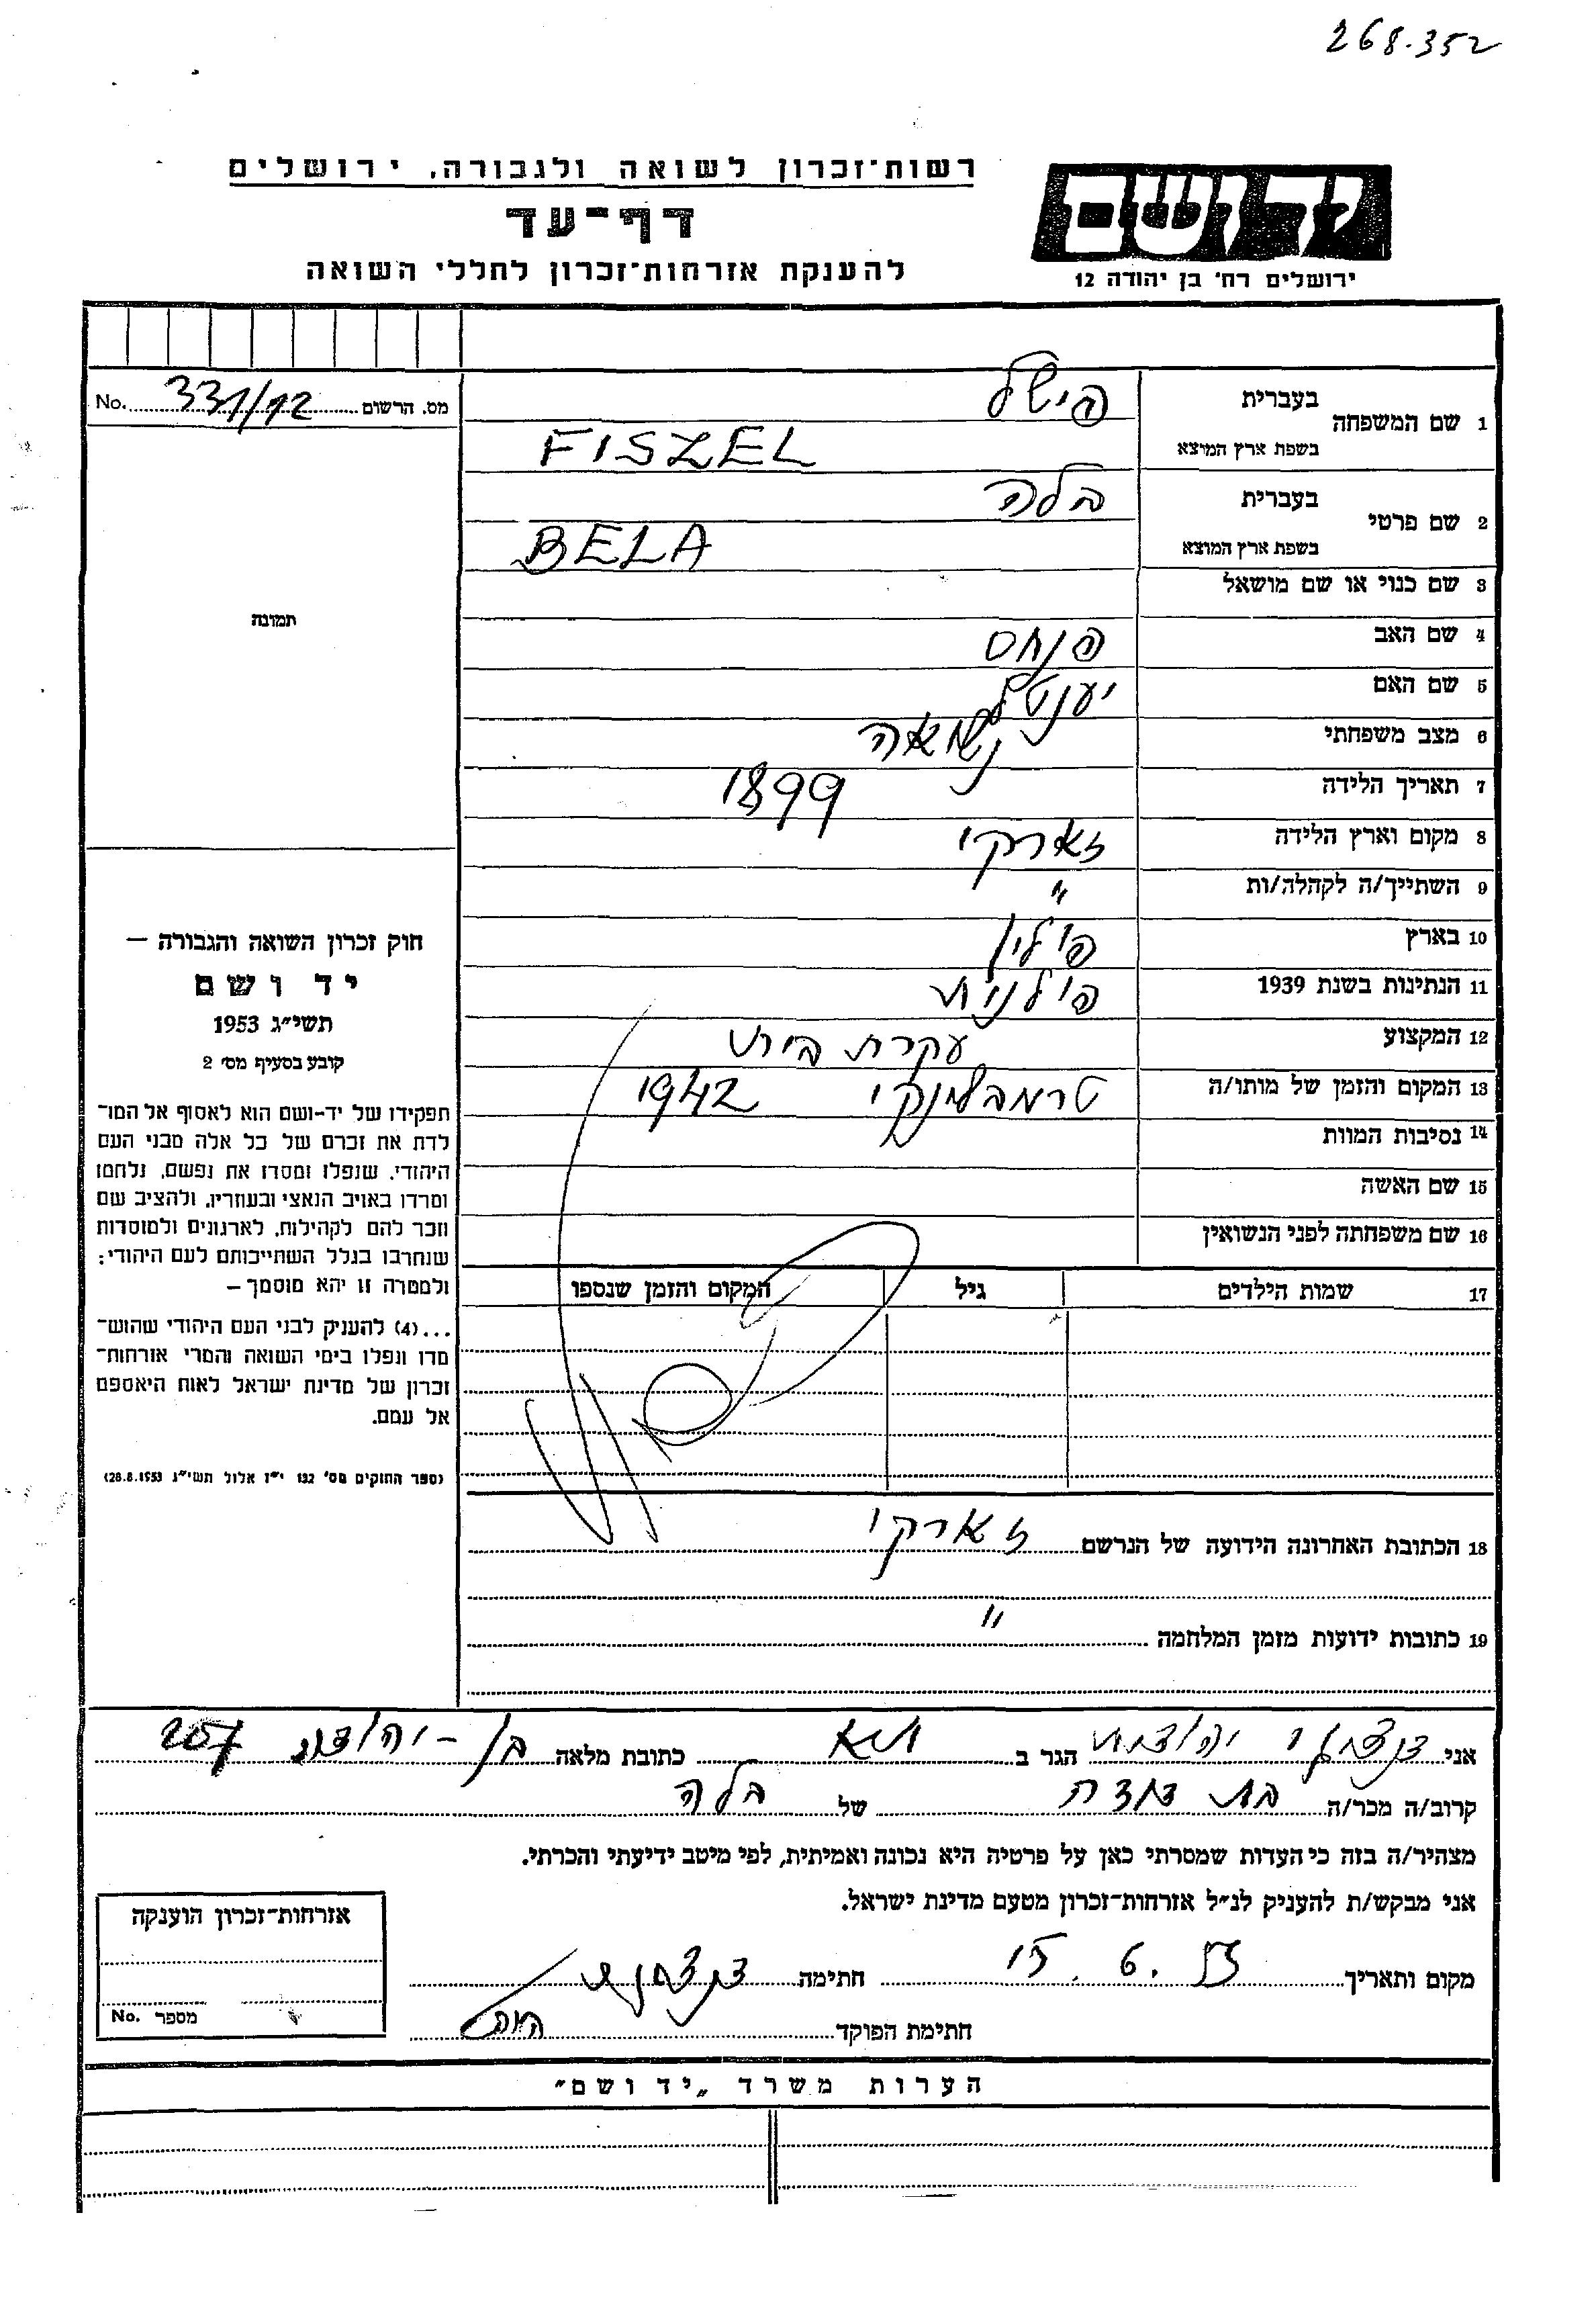 268.352
רשות־זכרון לשואה ולגבורה, ירושלים
דף־עד
להענקת אזרחות־זכרון לחללי השואה
יד ושם
ירושלים רח' בן יהודה 12
מס. הרשום 331/12 No.
1 שם המשפחה בעברית פישל
בשפת ארץ המוצא FISZEL
2 שם פרטי בעברית בלה
בשפת ארץ המוצא BELA
3 שם כנוי או שם מושאל
4 שם האב פנחס
5 שם האם יענטל
6 מצב משפחתי נשואה
7 תאריך הלידה 1899
8 מקום וארץ הלידה זארקי
9 השתייך/ה לקהלה/ות "
10 בארץ פולין
11 הנתינות בשנת 1939 פולנית
12 המקצוע עקרת בית
13 המקום והזמן של מותו/ה טרמבלינקי 1942
14 נסיבות המוות
15 שם האשה
16 שם משפחתה לפני הנשואין
17 שמות הילדים גיל המקום והזמן שנספו
18 הכתובת האחרונה הידועה של הנרשם זארקי
19 כתובות ידועות מזמן המלחמה "
תמונה
חוק זכרון השואה והגבורה —
יד ושם
תשי"ג 1953
קובע בסעיף מס' 2
תפקידו של יד-ושם הוא לאסוף אל המו־
לדת את זכרם של כל אלה מבני העם
היהודי, שנפלו ומסרו את נפשם, נלחמו
ומרדו באויב הנאצי ובעוזריו, ולהציב שם
וזכר להם לקהילות, לארגונים ולמוסדות
שנחרבו בגלל השתייכותם לעם היהודי;
ולמטרה זו יהא מוסמך —
...(4) להעניק לבני העם היהודי שהוש־
מדו ונפלו בימי השואה והמרי אזרחות־
זכרון של מדינת ישראל לאות היאספם
אל עמם.
(ספר החוקים מס' 132 י"ז אלול תשי"ג 28.8.1953)
אני יהודית הגר ב ת"א כתובת מלאה בן-יהודה 207
קרוב/ה מכר/ה בת דודה של בלה
מצהיר/ה בזה כי העדות שמסרתי כאן על פרטיה היא נכונה ואמיתית, לפי מיטב ידיעתי והכרתי.
אני מבקש/ת להעניק לנ"ל אזרחות־זכרון מטעם מדינת ישראל.
מקום ותאריך 15. 6. 55 חתימה
חתימת הפוקד
אזרחות־זכרון הוענקה
מספר No.
הערות משרד „יד ושם"